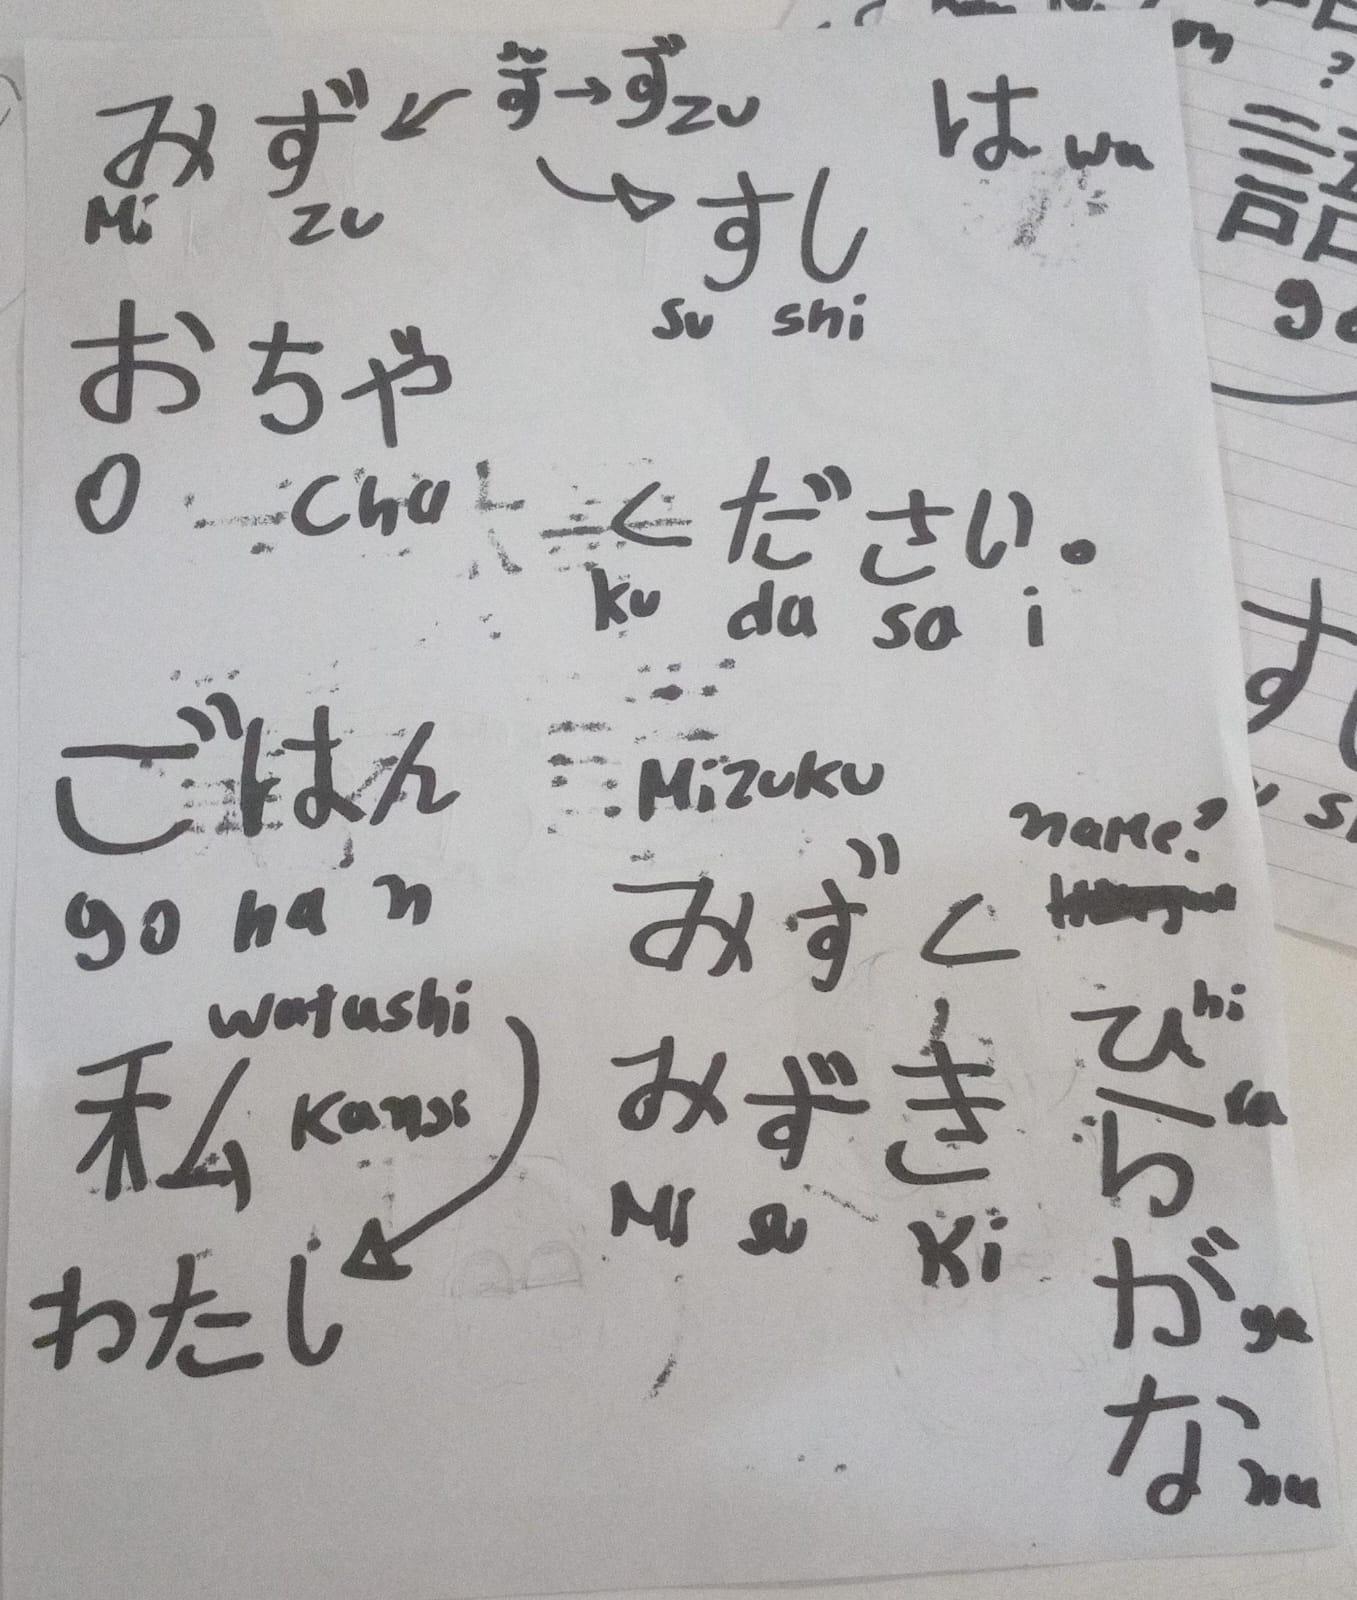 みず
Mi zu
す → ず zu
すし
su shi
は wa
おちゃ
O cha
ください。
ku da sa i
ごはん
go ha n
Mizuku
みずく
name?
watashi
私 Kanji
わたし
みずき
Mi su Ki
ひ hi
ら ra
が ga
な na
語
go
す